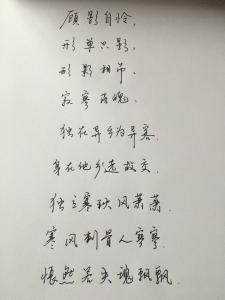 顾影自怜,
形单只影,
形影相吊.
寂寥落魄.
独在异乡为异客.
身在他乡遇故交.
独立寒秋风萧萧.
寒风刺骨人寥寥.
怅然若失魂飘飘.